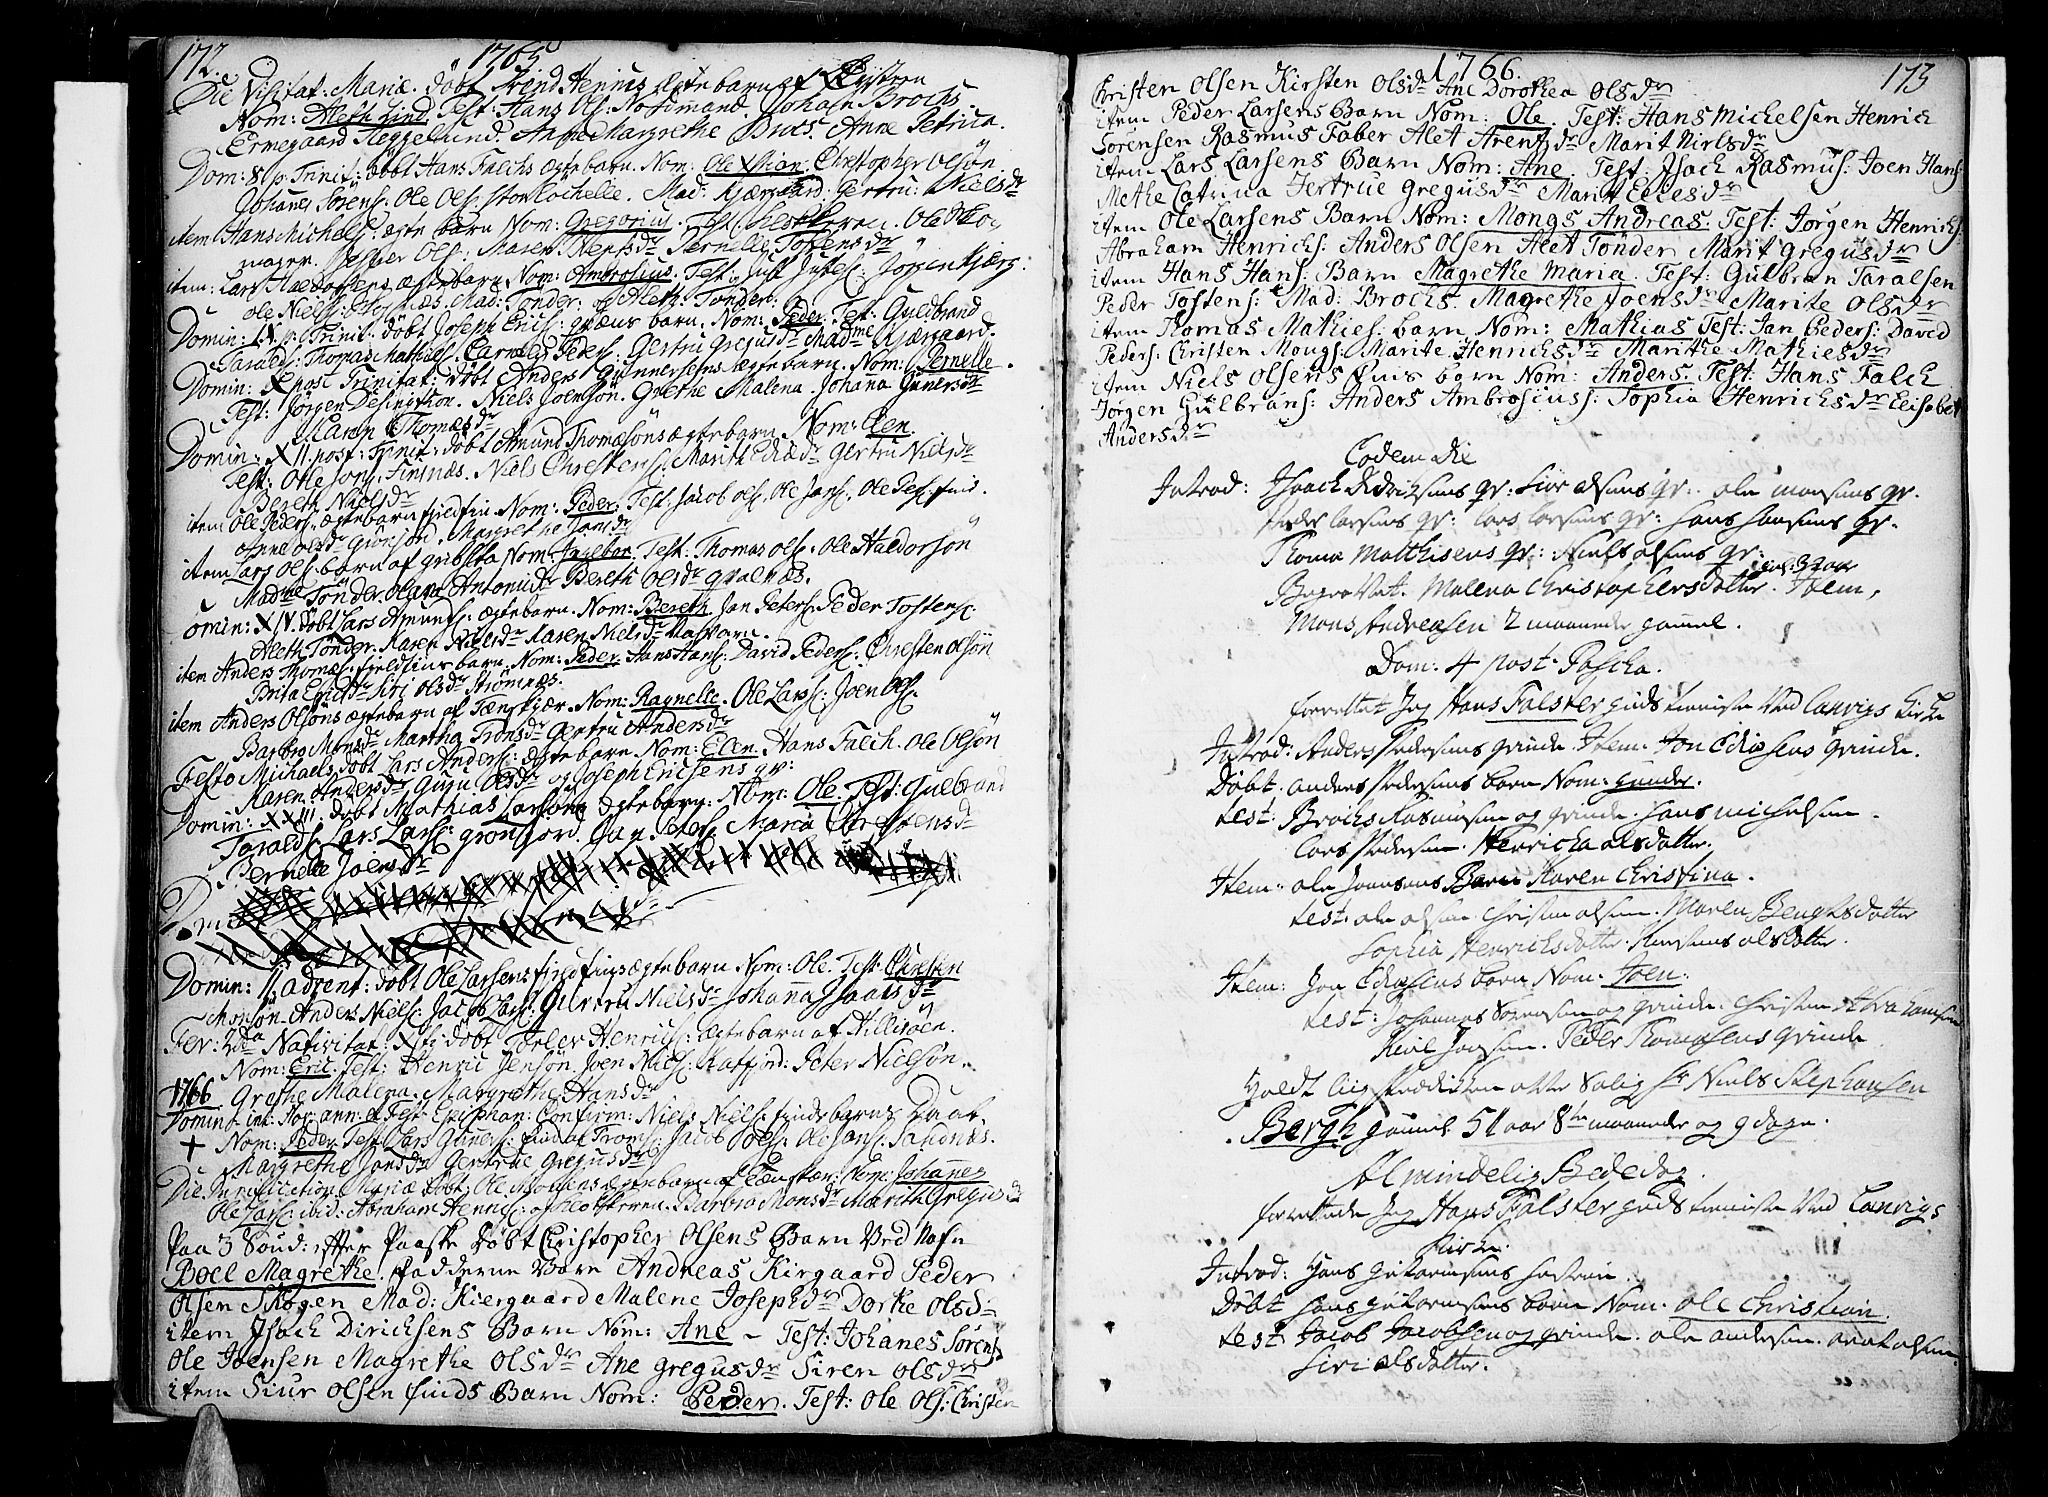 172. 1765
Die Visitat: Mariæ. döbt Trind Hennings ægtebarn af
Nom: Aleth Lind. Test: Hans Ol: Nordmand. Johan Brochs.
Ermegaard Heggelund. Anne Margrethe Brocs. Anne Petrica.
Dom: 8 p: Trinit: döbt Hans Falchs ægtebarn. Nom: Ole Xstian. Christopher Olsön
Johanes Sörens: Ole Ols: Mad: Kjærgaard. Gertru: Nielsdr
item Hans Michels: ægte barn Nom: Gregorius. Test:
Jesper Ols: Maren Jensdr Pernelle Tostensdr
item: Lars Haldorsens ægtebarn Nom: Ambrosius. Test: Just Justes: Jörgen Kjærg:
Ole Niels: Mad: Tönder. og Aleth: Tönder.
Domin: IX. p: Trinit: döbt Joseph Erics: barn. Nom: Peder. Test: Guldbrand
Taralds: Thomas Mathies. Carnelis Peders: Gertru Gregusdr Madme Kjærgaard.
Domin: X post Trinitat: döbt Anders Gunnersens ægtebarn. Nom: Pernelle.
Test: Jörgen Desington. Niels Joensön. Grethe Malena. Johana Gunersdr
Karen Thomæsdr
Domin: XII. post: Trinit: döbt Amund Thomæsöns ægtebarn Nom: Elen.
Test: Ole Jons: Finsnæs. Niels Christens: Marith Gertru Nielsdr
Bereth Nielsdr
item: Ole Peders: ægtebarn fieldfin. Nom: Peder. Test: Jacob Ols. Ole Jans. Ole Pes: find.
Anne Olsdr Margrethe Jansdr
item Lars Ols: barn af Nom: Ingebor. Test: Thomas Ols: Ole Haldorsön
Madme Tönder. Antonidr Bereth Olsdr Qvalnæs.
Domin: XIV. döbt Lars Amunds: ægtebarn. Nom: Bereth. Jan Peters: Peder Tostens:
Aleth Tönder. Karen Nilsdr Karen Nielsdr
item Anders Thomæs: fieldfins barn. Nom: Peder. Hans Hans: David Peders: Christen Olsön
Brita Ericsdr Siri Olsdr Strömnæs.
item Anders Olsöns ægtebarn af Tænskjær. Nom: Ragnelle. Ole Lars: Joen Ols:
Barbro Monsdr Martha Gertru Andersdr
Festo Michaels döbt Lars Anders: ægtebarn Nom: Elen. Hans Falch. Ole Olsön
Karen Andersdr Guru Olsdr og Joseph Ericsens qv:
Domin: XXIII. döbt Mathias Larsöns ægtebarn. Nom: Ole. Test: Gulbrand
Taralds: Lars Lars: Grönfjord. Jan Peters: Maria Christensdr
Pernelle Joensdr
Domin: II. advent: döbt Ole Larsens findfins ægtebarn Nom: Ole. Test: Christen
Anders Niels: Jacob Lars: Gertru Nielsdr Johanna Isaacsdr
Fer: 2da Nativitat: Xsti döbt Henrics: ægtebarn af Hillisöen.
Nom: Eric. Test: Henric Jensön. Joen Niels: Katfjord: Peter Nielsön.
1766 Grethe Malena. Margrethe Hansdr
Domin: int: nov: ann: et Fest: Epiphan: Confirm: Niels Niels: finds barns Daab.
+ Nom: Peder. Test: Lars Guners: find af Troms: Jacob Ols: Ole Jans:
Margrethe Jansdr Gertrue Gregusdr
Die Purification: Mariæ döbt: Ole Monsens ægtebarn af Tænskær: Nom: Johannes
Ole Lars: ibid: Abraham Henrics: Barbro Monsdr Marith Gregusdr
Paa 3 Sönd: efter Paaske döbt Christopher Olsens Barn Ved Nafn
Boel Magrethe. Fadderne Vare Andreas Kirgaard Peder
Olsen Skogen Mad: Kiergaard Malene Josephdr Dorthe Ols:
item Isach Diricksens Barn Nom: Ane – Test: Johanes Sörens:
Ole Joensen Magrethe Olsdr Ane Gregusdr Siren Olsdr
item Siur Olsen finds Barn Nom: Peder. Test: Ole Ols: Christen
1766. 173
Christen Olsen Kirsten Olsdr Ane Dorothea Olsdr
item Peder Larsens Barn Nom: Ole. Test: Hans Michelsen Henrich
Sörensen Rasmus Faber Alet Arentsdr Marit Nielsdr
item Lars Larsens Barn Nom: Ane. Test: Isach Rasmus: Joen Hans:
Methe Catrina Jertrue Gregusdr Marit Ellesdr
item Ole Larsens Barn Nom: Mongs Andreas. Test: Jørgen Henrichs:
Abraham Henrichs: Anders Olsen Alet Tönder Marit Gregusdr
item Hans Hans: Barn Magrethe Maria. Test: Gulbran Taralsen
Peder Tostens: Mad: Brochs. Magrethe Joensdr Marite Olsdr
item Thomas Mathies: barn Nom: Mathias Test: Jan Peders: David
Peders: Christen Mongs: Marite Henrichsdr Marithe Mathiesdr
item Niels Olsens Fins barn Nom: Anders. Test: Hans Falch
Jörgen Gulbrans: Anders Ambrosiuss: Sophia Henrichsdr Elisabet
Andersdr
Eodem Die
Introd: Isach Didrichsens qv: Siur olsens qv: ole monsens qv.
Peder larsens qv: lars larsens qv: hans hansens qv.
Thoma Matthisens qv: Niels olsens qv:
Begravet. Malena Christophersdotter. Item,
Mons Andreasen 2 maaneder gammel.
Dom: 4 post. Pascha.
forrettet Jeg Hans Falster guds tieniste Ved Lanvigs Kirke
Introd: Anders Pedersens qvinde. Item. Jon Ediasens qvinde.
Döbt. anders Pedersens barn Nom: gunder.
test: Brochs Rasmusen og qvinde. hans michelsen.
lars Pedersen. Henricha olsdotter.
Item: ole Joensens Barn Karen Christina.
test: ole olsen. christen olsen. Maren Bengtsdotter
Sophia Henrichsdotter. Kirsten olsdotter.
Item: Jon Ediasens barn Nom: Joen.
test: Johannes Sörensen og qvinde. christen Abrahamsen
Joensen. Peder Thomesens qvinde
Holdt liigprædicken over Salig Hr Niels Stephansen
Bergh gammel 51 aar 8te maaneder og 9 dage.
Almindelig Bededag
forrettede Jeg Hans Falster guds tieniste Ved Lanvigs
Kirke.
Introd: Hans hustrue.
Döbt hans barn Nom: ole christian.
test Jacob Jacobsen og qvinde. ole andersen. olsen.
Siri olsdotter.